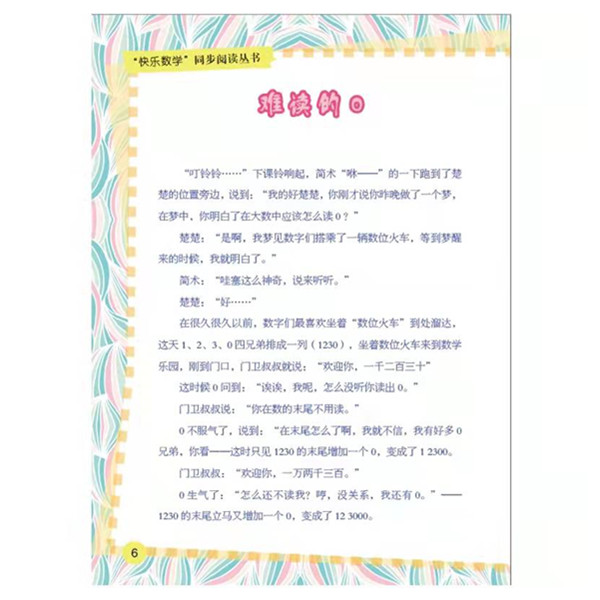 “快乐数学”同步阅读丛书
难读的0
“叮铃铃……”下课铃响起，简术“咻——”的一下跑到了楚
楚的位置旁边，说到：“我的好楚楚，你刚才说你昨晚做了一个梦，
在梦中，你明白了在大数中应该怎么读0？”
楚楚：“是啊，我梦见数字们搭乘了一辆数位火车，等到梦醒
来的时候，我就明白了。”
简术：“哇塞这么神奇，说来听听。”
楚楚：“好……”
在很久很久以前，数字们最喜欢坐着“数位火车”到处溜达，
这天1、2、3、0四兄弟排成一列（1230），坐着数位火车来到数学
乐园，刚到门口，门卫叔叔就说：“欢迎你，一千二百三十”
这时候0问到：“诶诶，我呢，怎么没听你读出0。”
门卫叔叔说：“你在数的末尾不用读。”
0不服气了，说到：“在末尾怎么了啊，我就不信，我有好多0
兄弟，你看——这时只见1230的末尾增加一个0，变成了1 2300。
门卫叔叔：“欢迎你，一万两千三百。”
0生气了：“怎么还不读我？哼，没关系，我还有0。”——
1230的末尾立马又增加一个0，变成了12 3000。
6